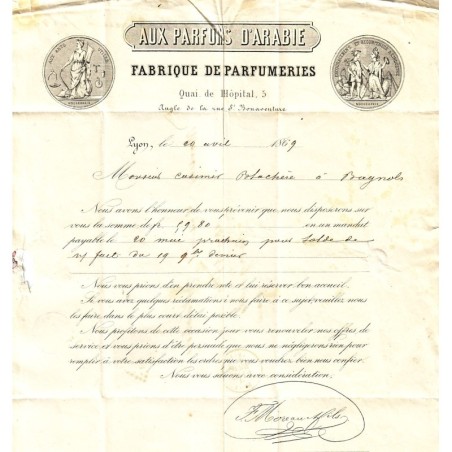 AUX PARFUMS D'ARABIE
FABRIQUE DE PARFUMERIES
Quai de l'Hôpital, 5
Angle de la rue St Bonaventure
Lyon, le 20 avril 1869
Monsieur Casimir à Bagnols
Nous avons l'honneur de vous prévenir que nous disposerons sur
vous la somme de fr. 59,80 en un mandat
payable le 20 mai prochain, pour solde de
n/ fact. du 19 9bre dernier
Nous vous prions d'en prendre note et lui réserver bon accueil.
Si vous avez quelques réclamations à nous faire à ce sujet veuillez nous
les faire dans le plus court délai possible.
Nous profitons de cette occasion pour vous renouveler nos offres de
service et vous prions d'être persuadé que nous ne négligerons rien pour
remplir à votre satisfaction les ordres que vous voudrez bien nous confier.
Nous vous saluons avec considération.